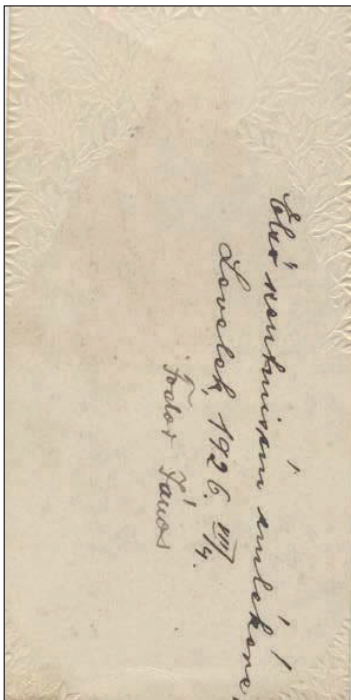 Első szentmisém emlékére
Lovelek, 1926. VII/4.
Fodor János